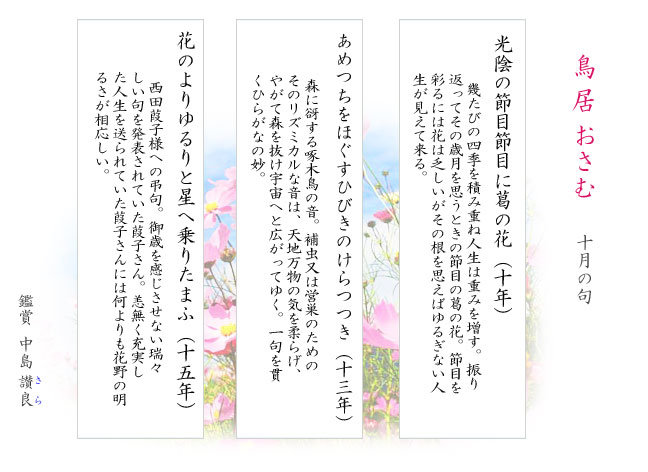 鳥居おさむ
十月の句
光陰の節目節目に葛の花（十年）
幾たびの四季を積み重ね人生は重みを増す。振り
返ってその歳月を思うときの節目の葛の花。節目を
彩るには花は乏しいがその根を思えばゆるぎない人
生が見えて来る。
あめつちをほぐすひびきのけらつつき（十三年）
森に谺する啄木鳥の音。補虫又は営巣のための
そのリズミカルな音は、天地万物の気を柔らげ、
やがて森を抜け宇宙へと広がってゆく。一句を貫
くひらがなの妙。
花のよりゆるりと星へ乗りたまふ（十五年）
西田葭子様への弔句。御歳を感じさせない瑞々
しい句を発表されていた葭子さん。恙無く充実し
た人生を送られていた葭子さんには何よりも花野の明
るさが相応しい。
鑑賞 中島 讃良
さら